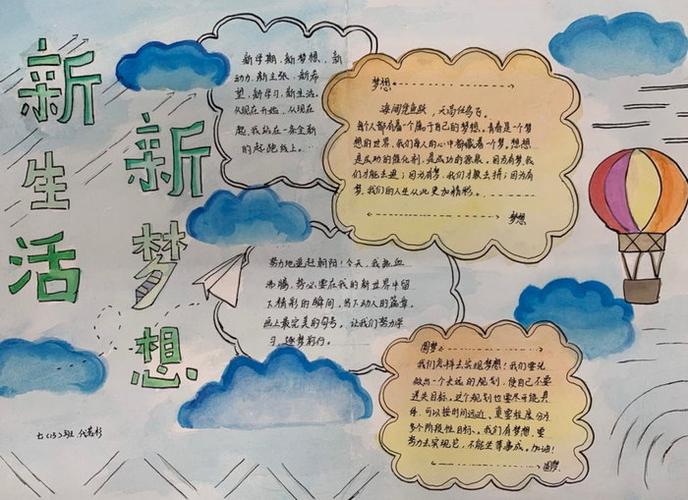 新生活
新梦想
新学期,新梦想,新
动力,新主张,新希
望,新学习,新生活。
从现在开始,从现在
起,我站在一条全新
的起跑线上。…
梦想
海阔凭鱼跃,天高任鸟飞。
每个人都有着一个属于自己的梦想。青春是一个梦
想的世界,我们每人的心中都藏着一个梦。梦想
是成功的催化剂,是成功的源泉。因为有梦,我
们才能去追;因为有梦,我们才敢去拼;因为有
梦,我们的人生从此更加精彩。
梦想
努力地追赶朝阳!今天,我热血
沸腾,势必要在我的新世界中留
下精彩的瞬间,写下动人的篇章,
画上最完美的句号。让我们努力学
习,逐梦前行。
圆梦
我们怎样去实现梦想?我们要先
做出一个长远的规划,使自己不要
迷失目标。这个规划也要尽可能具
体,可以按时间远近,重要程度分为
多个阶段性目标。我们有梦想,要
努力去实现它,不能坐等事成。加油!
圆梦
七(13)班